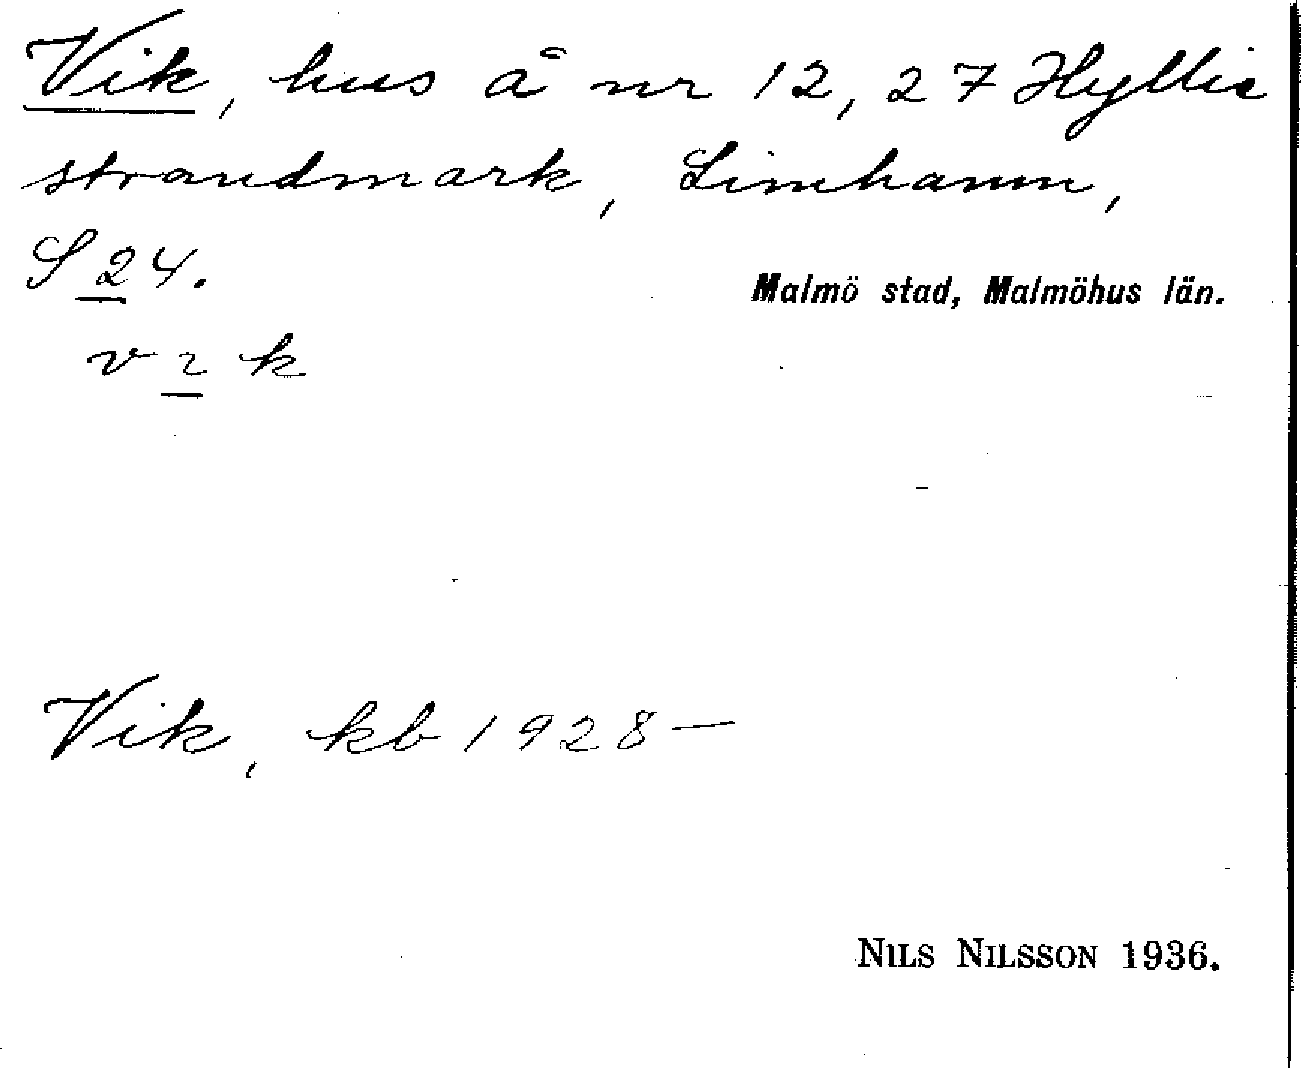 Vik, hus å nr 12, 27 Hyllie
strandmark, Limhamn,
S 24.
Malmö stad, Malmöhus län.
v ɩ k
Vik, kb 1928—
NILS NILSSON 1936.